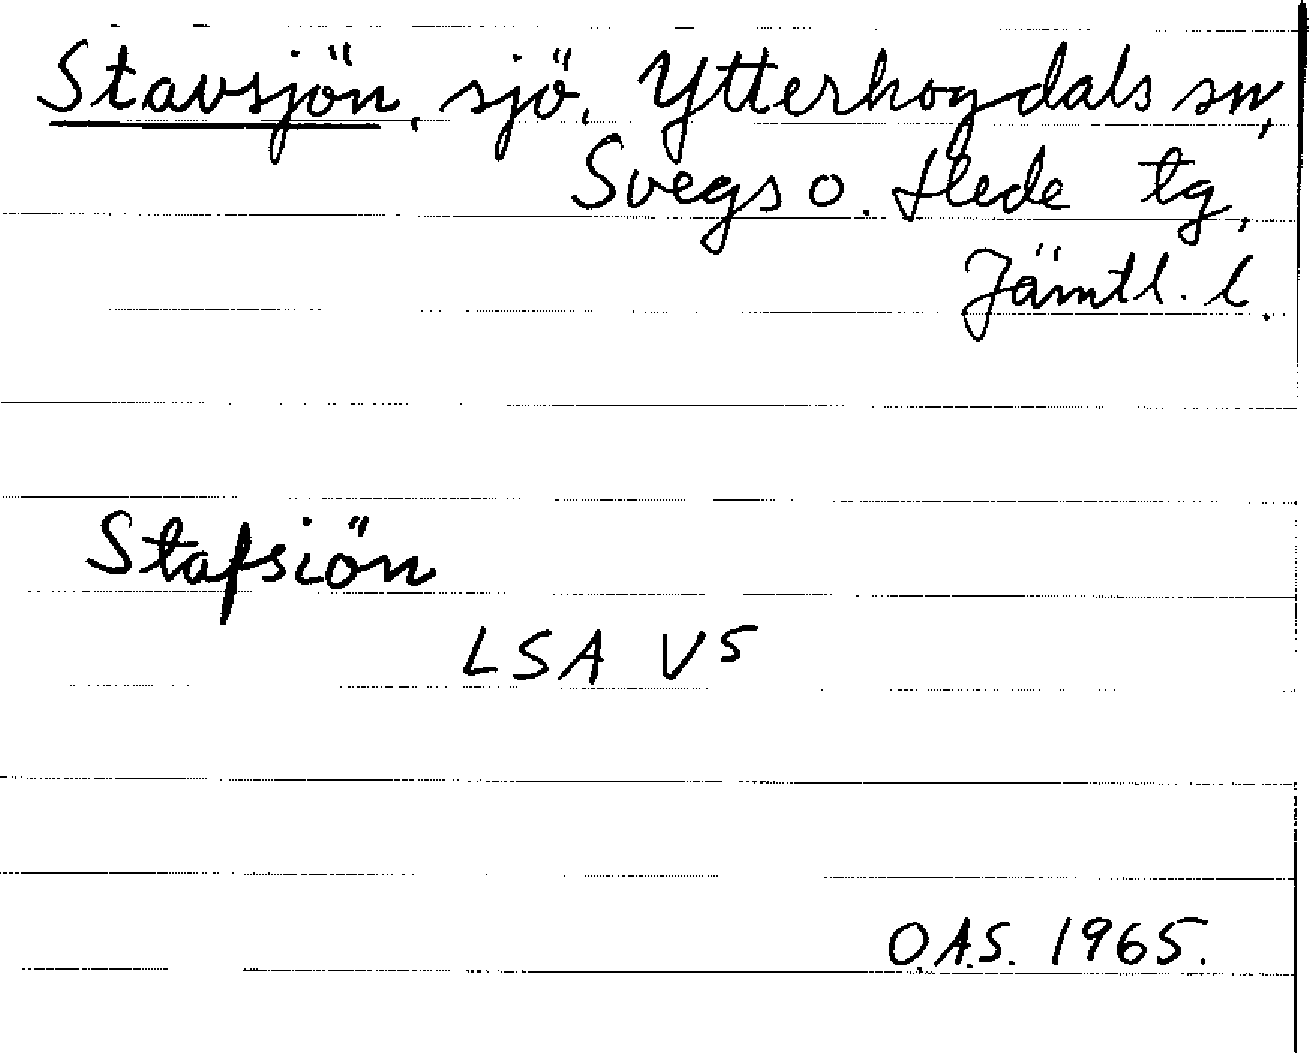 Stavsjön, sjö, Ytterhogdals sn,
Svegs o. Hede tg,
Jämtl. l.
Stafsiön
LSA V5
O.A.S. 1965.